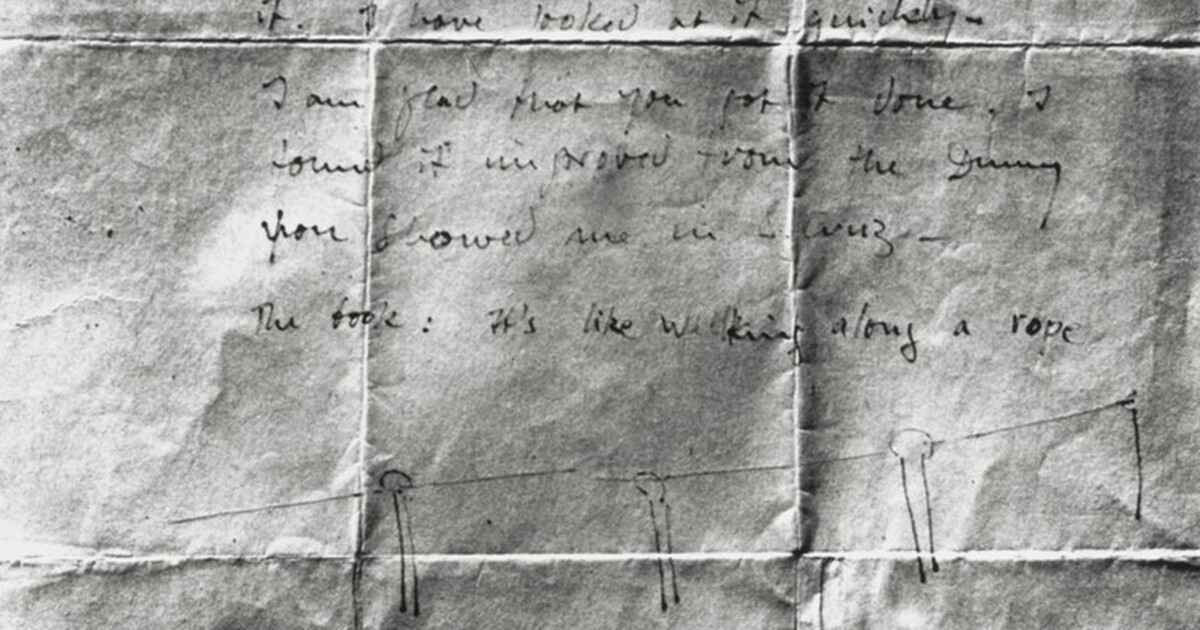 it. I have looked at it quickly –
I am glad that you got it done. I
found it improved from the Dummy
you showed me in
The book: It's like walking along a rope